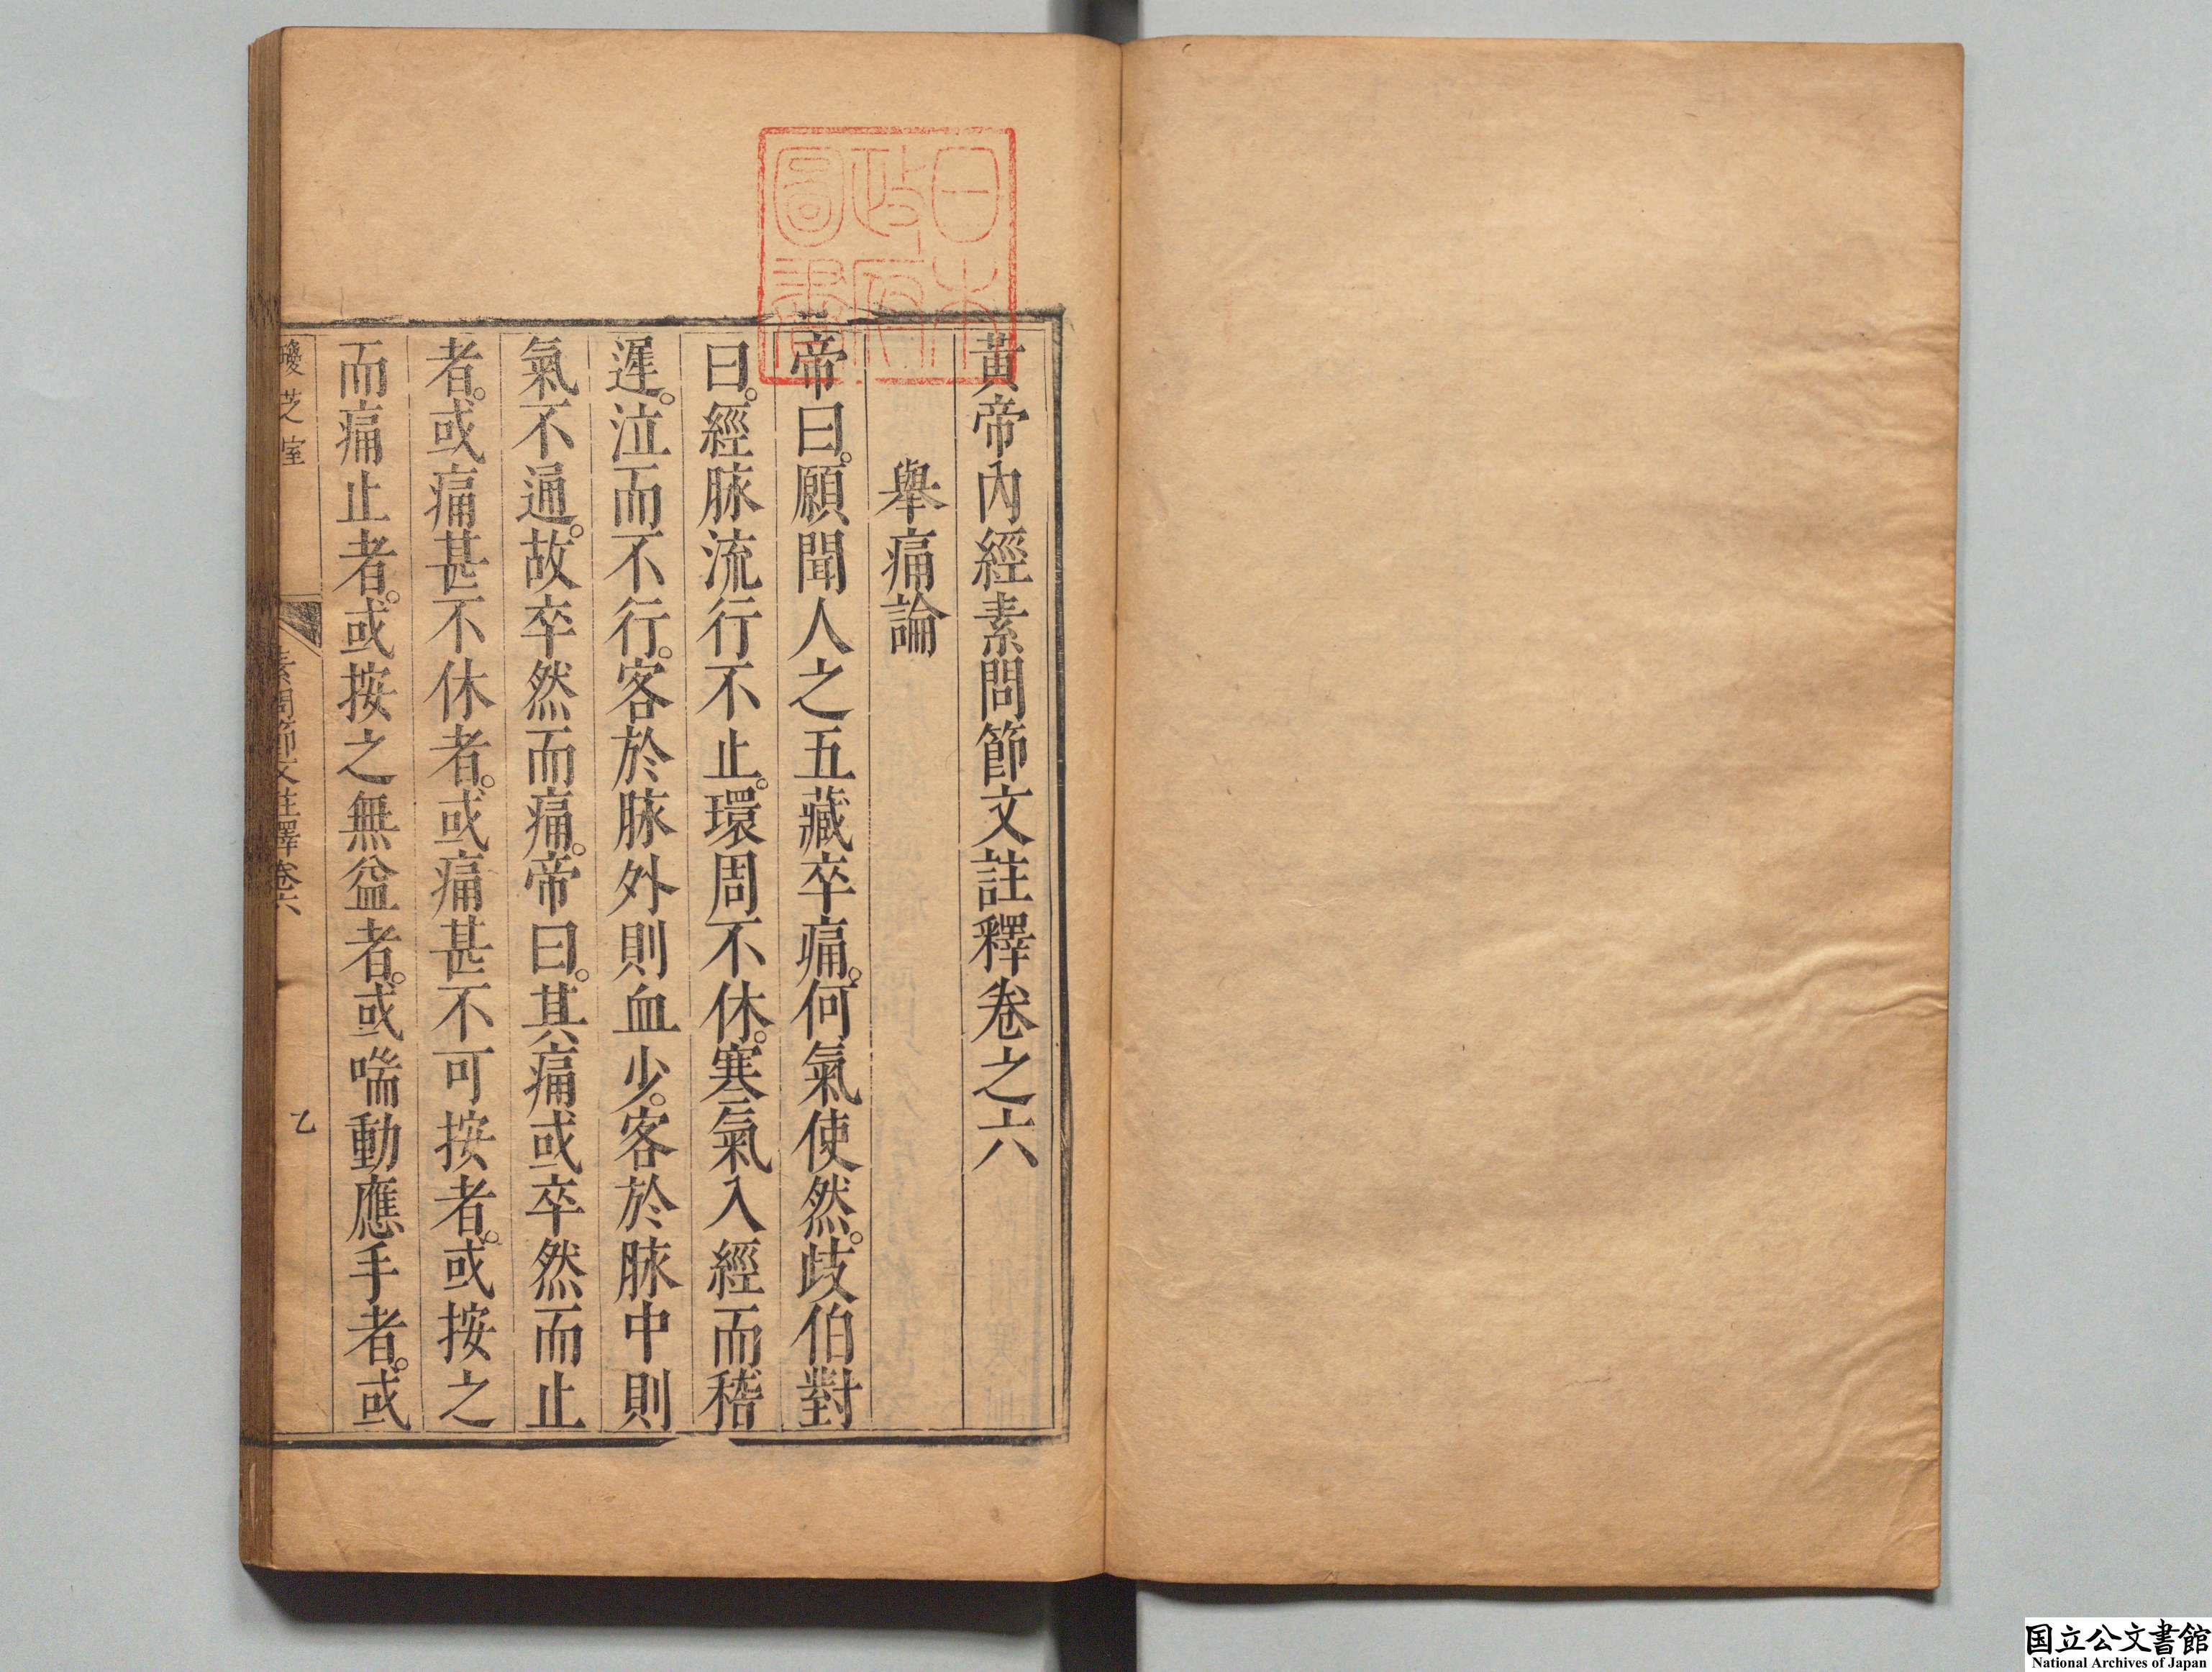 黃帝內經素問節文註釋卷之六
舉痛論
帝曰。願聞人之五藏卒痛。何氣使然。歧伯對
曰。經脉流行不止。環周不休。寒氣入經而稽
遲。泣而不行。客於脉外則血少。客於脉中則
氣不通。故卒然而痛。帝曰。其痛或卒然而止
者。或痛甚不休者。或痛甚不可按者。或按之
而痛止者。或按之無益者。或喘動應手者。或
芝室
素問節文註釋卷六
乙
日本
政府
圖書
国立公文書館
National Archives of Japan